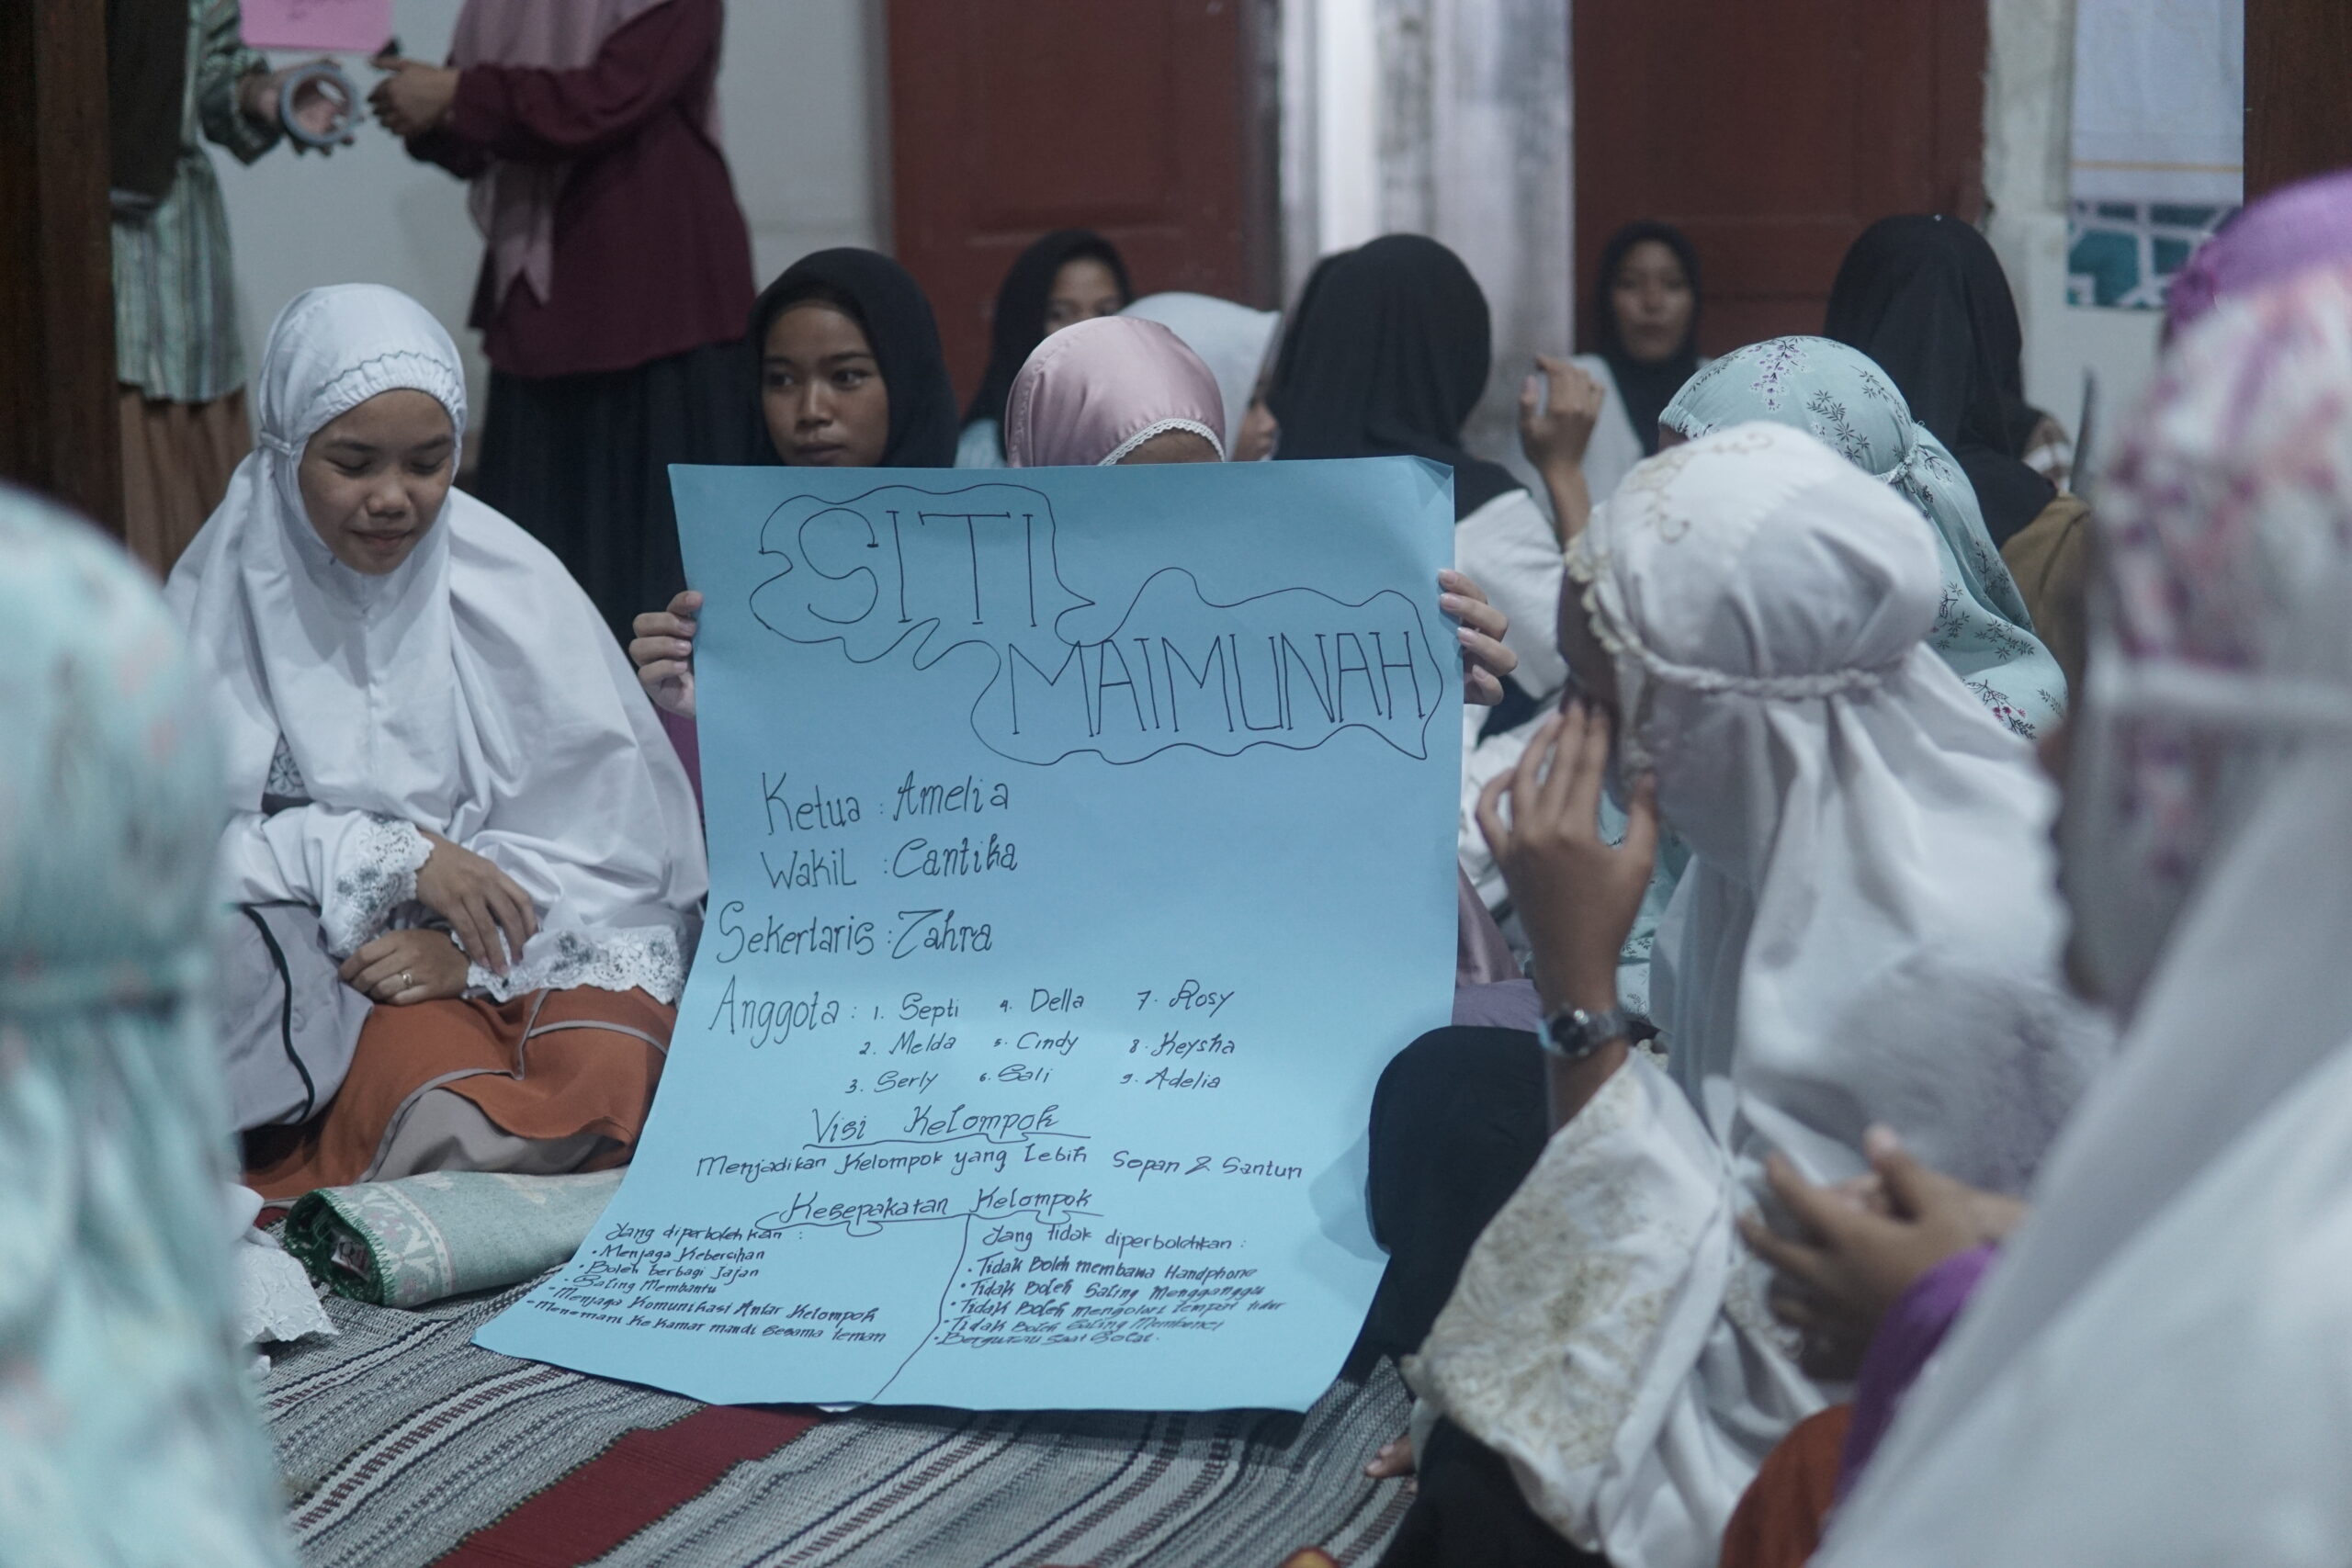 SITI
MAIMUNAH
Ketua : Amelia
Wakil : Cantika
Sekertaris : Zahra
Anggota : 1. Septi 4. Della 7. Rosy
2. Melda 5. Cindy 8. Keysha
3. Serly 6. Sali 9. Adelia
Visi Kelompok
Menjadikan Kelompok yang Lebih Sopan & Santun
Kesepakatan Kelompok
Yang diperbolehkan :
• Menjaga Kebersihan
• Boleh berbagi Jajan
• Saling Membantu
• Menjaga Komunikasi Antar Kelompok
• Menemani Ke Kamar mandi Sesama teman
Yang tidak diperbolehkan :
• Tidak Boleh membawa Handphone
• Tidak Boleh Saling Mengganggu
• Tidak Boleh mengotori tempat tidur
• Tidak Boleh Saling Membenci
• Bergurau Saat Solat.